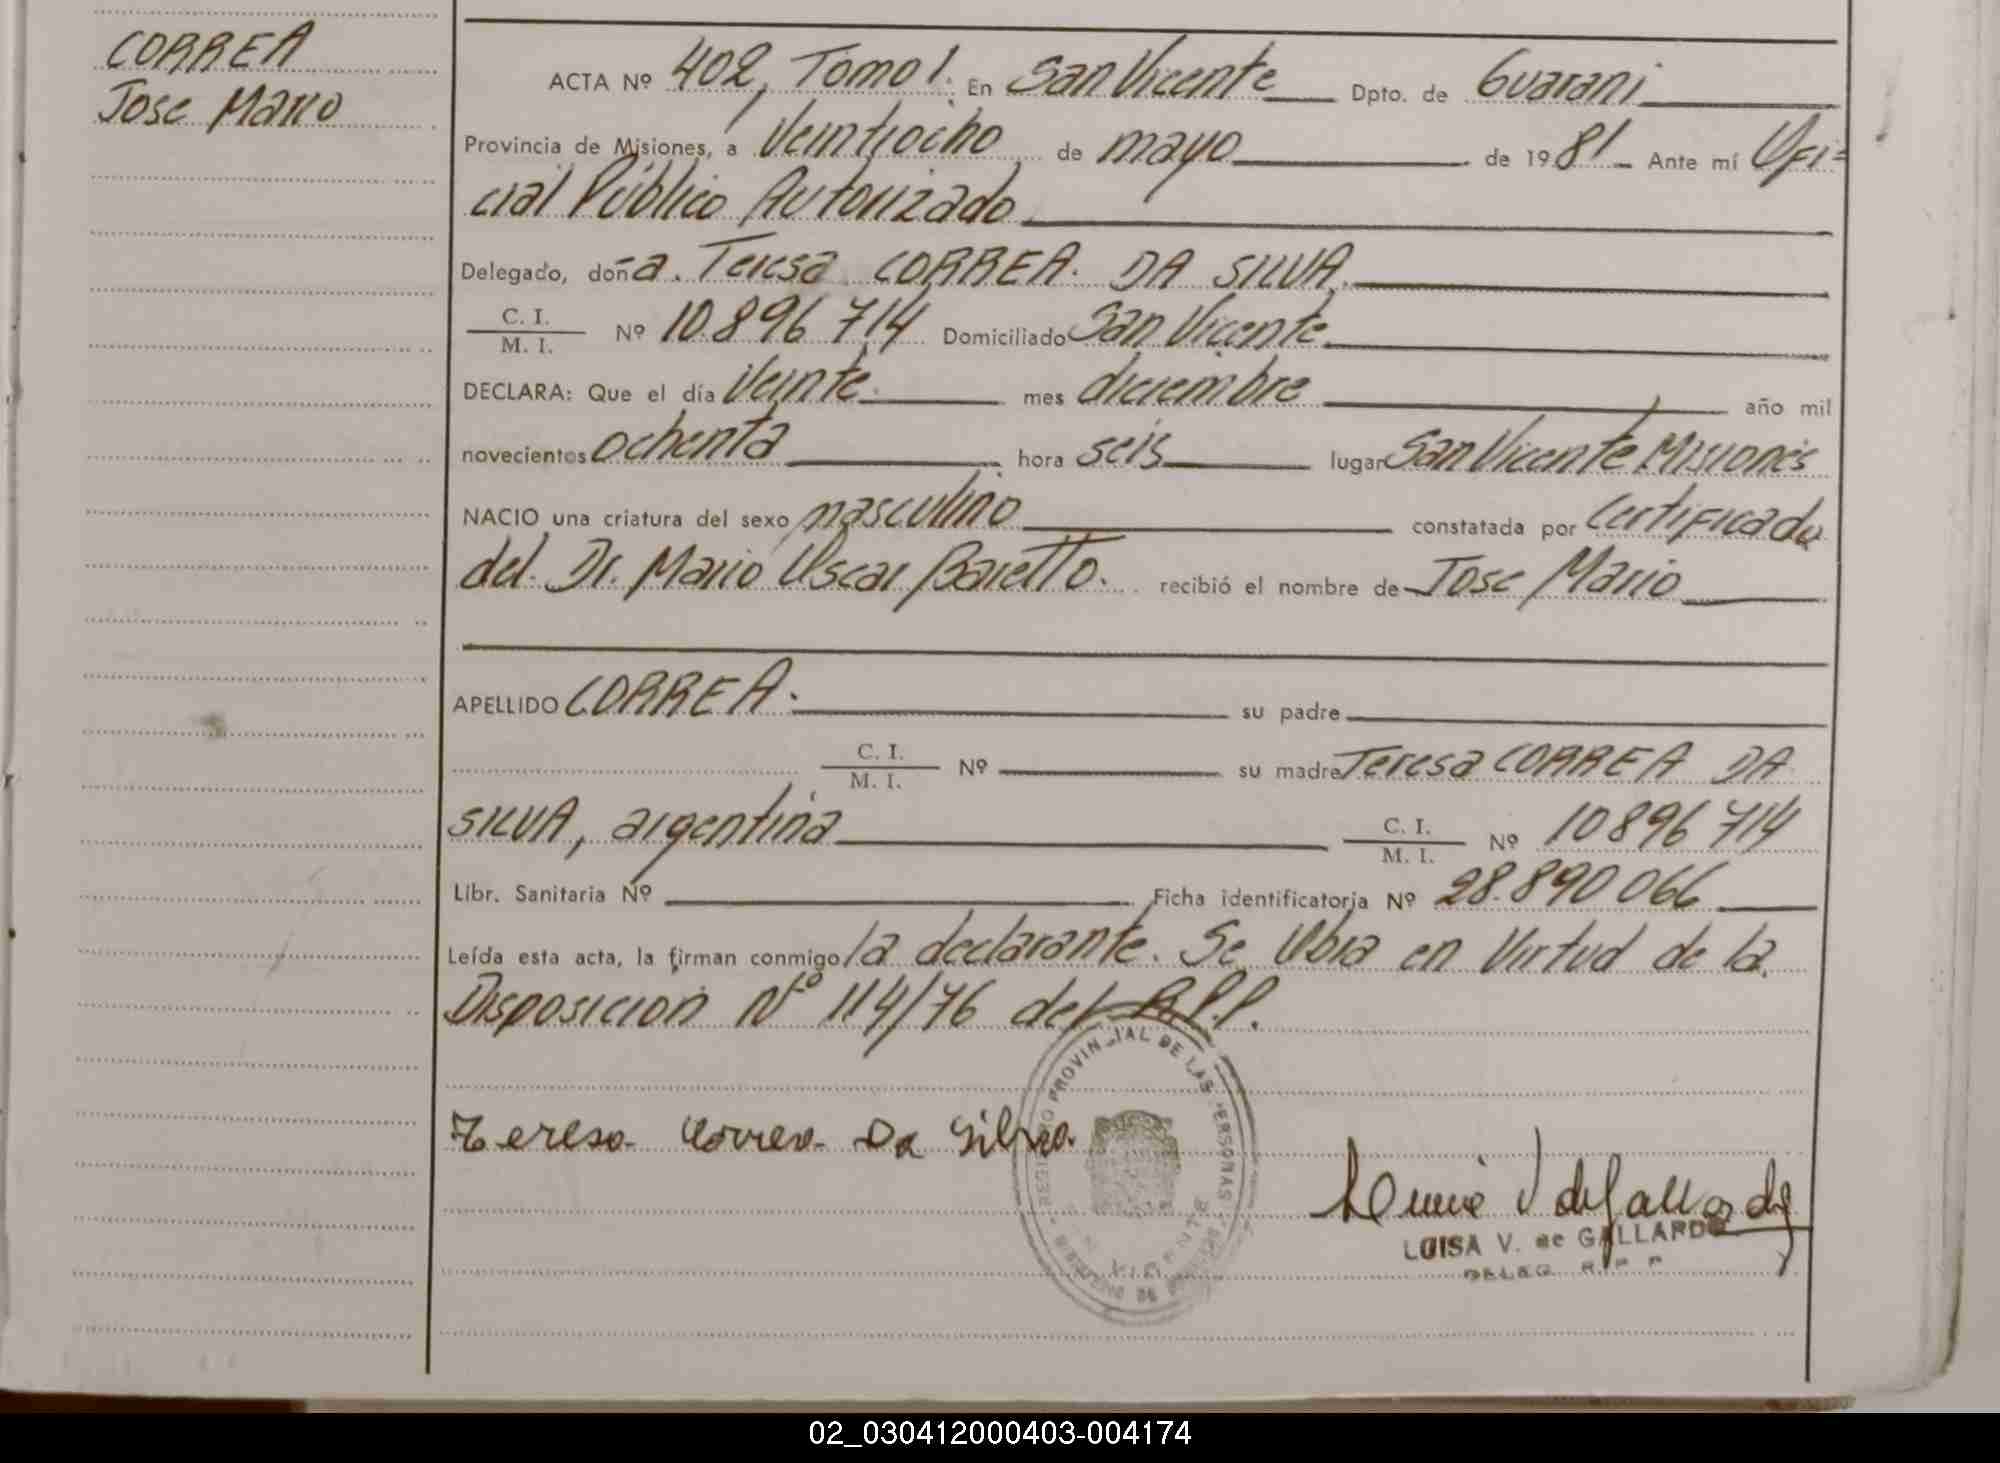 CORREA
Jose Mario
ACTA Nº 402, Tomo I. En San Vicente Dpto. de Guarani
Provincia de Misiones, a Veintiocho de mayo de 1981 Ante mí Ofi=
cial Público Autorizado
Delegado, doña. Teresa CORREA. DA SILVA.
C. I.
M. I. Nº 10.896 714 Domiciliado San Vicente.
DECLARA: Que el día Veinte mes diciembre año mil
novecientos ochenta hora seis lugar San Vicente Misiones
NACIO una criatura del sexo masculino constatada por Certificado
del. Dr. Mario Oscar Baretto. recibió el nombre de Jose Mario
APELLIDO CORREA. su padre
C. I.
M. I. Nº su madre Teresa CORREA DA
SILVA, argentina C. I.
M. I. Nº 10896 714
Libr. Sanitaria Nº Ficha identificatoria Nº 28.890 066
Leída esta acta, la firman conmigo la declarante. Se Obra en Virtud de la
Disposicion Nº 114/76 del R.P.P.
REGISTRO PROVINCIAL DE LAS PERSONAS
Teresa Correa Da Silva.
LUISA V. de GALLARDO
DELEG. R P P
02_030412000403-004174